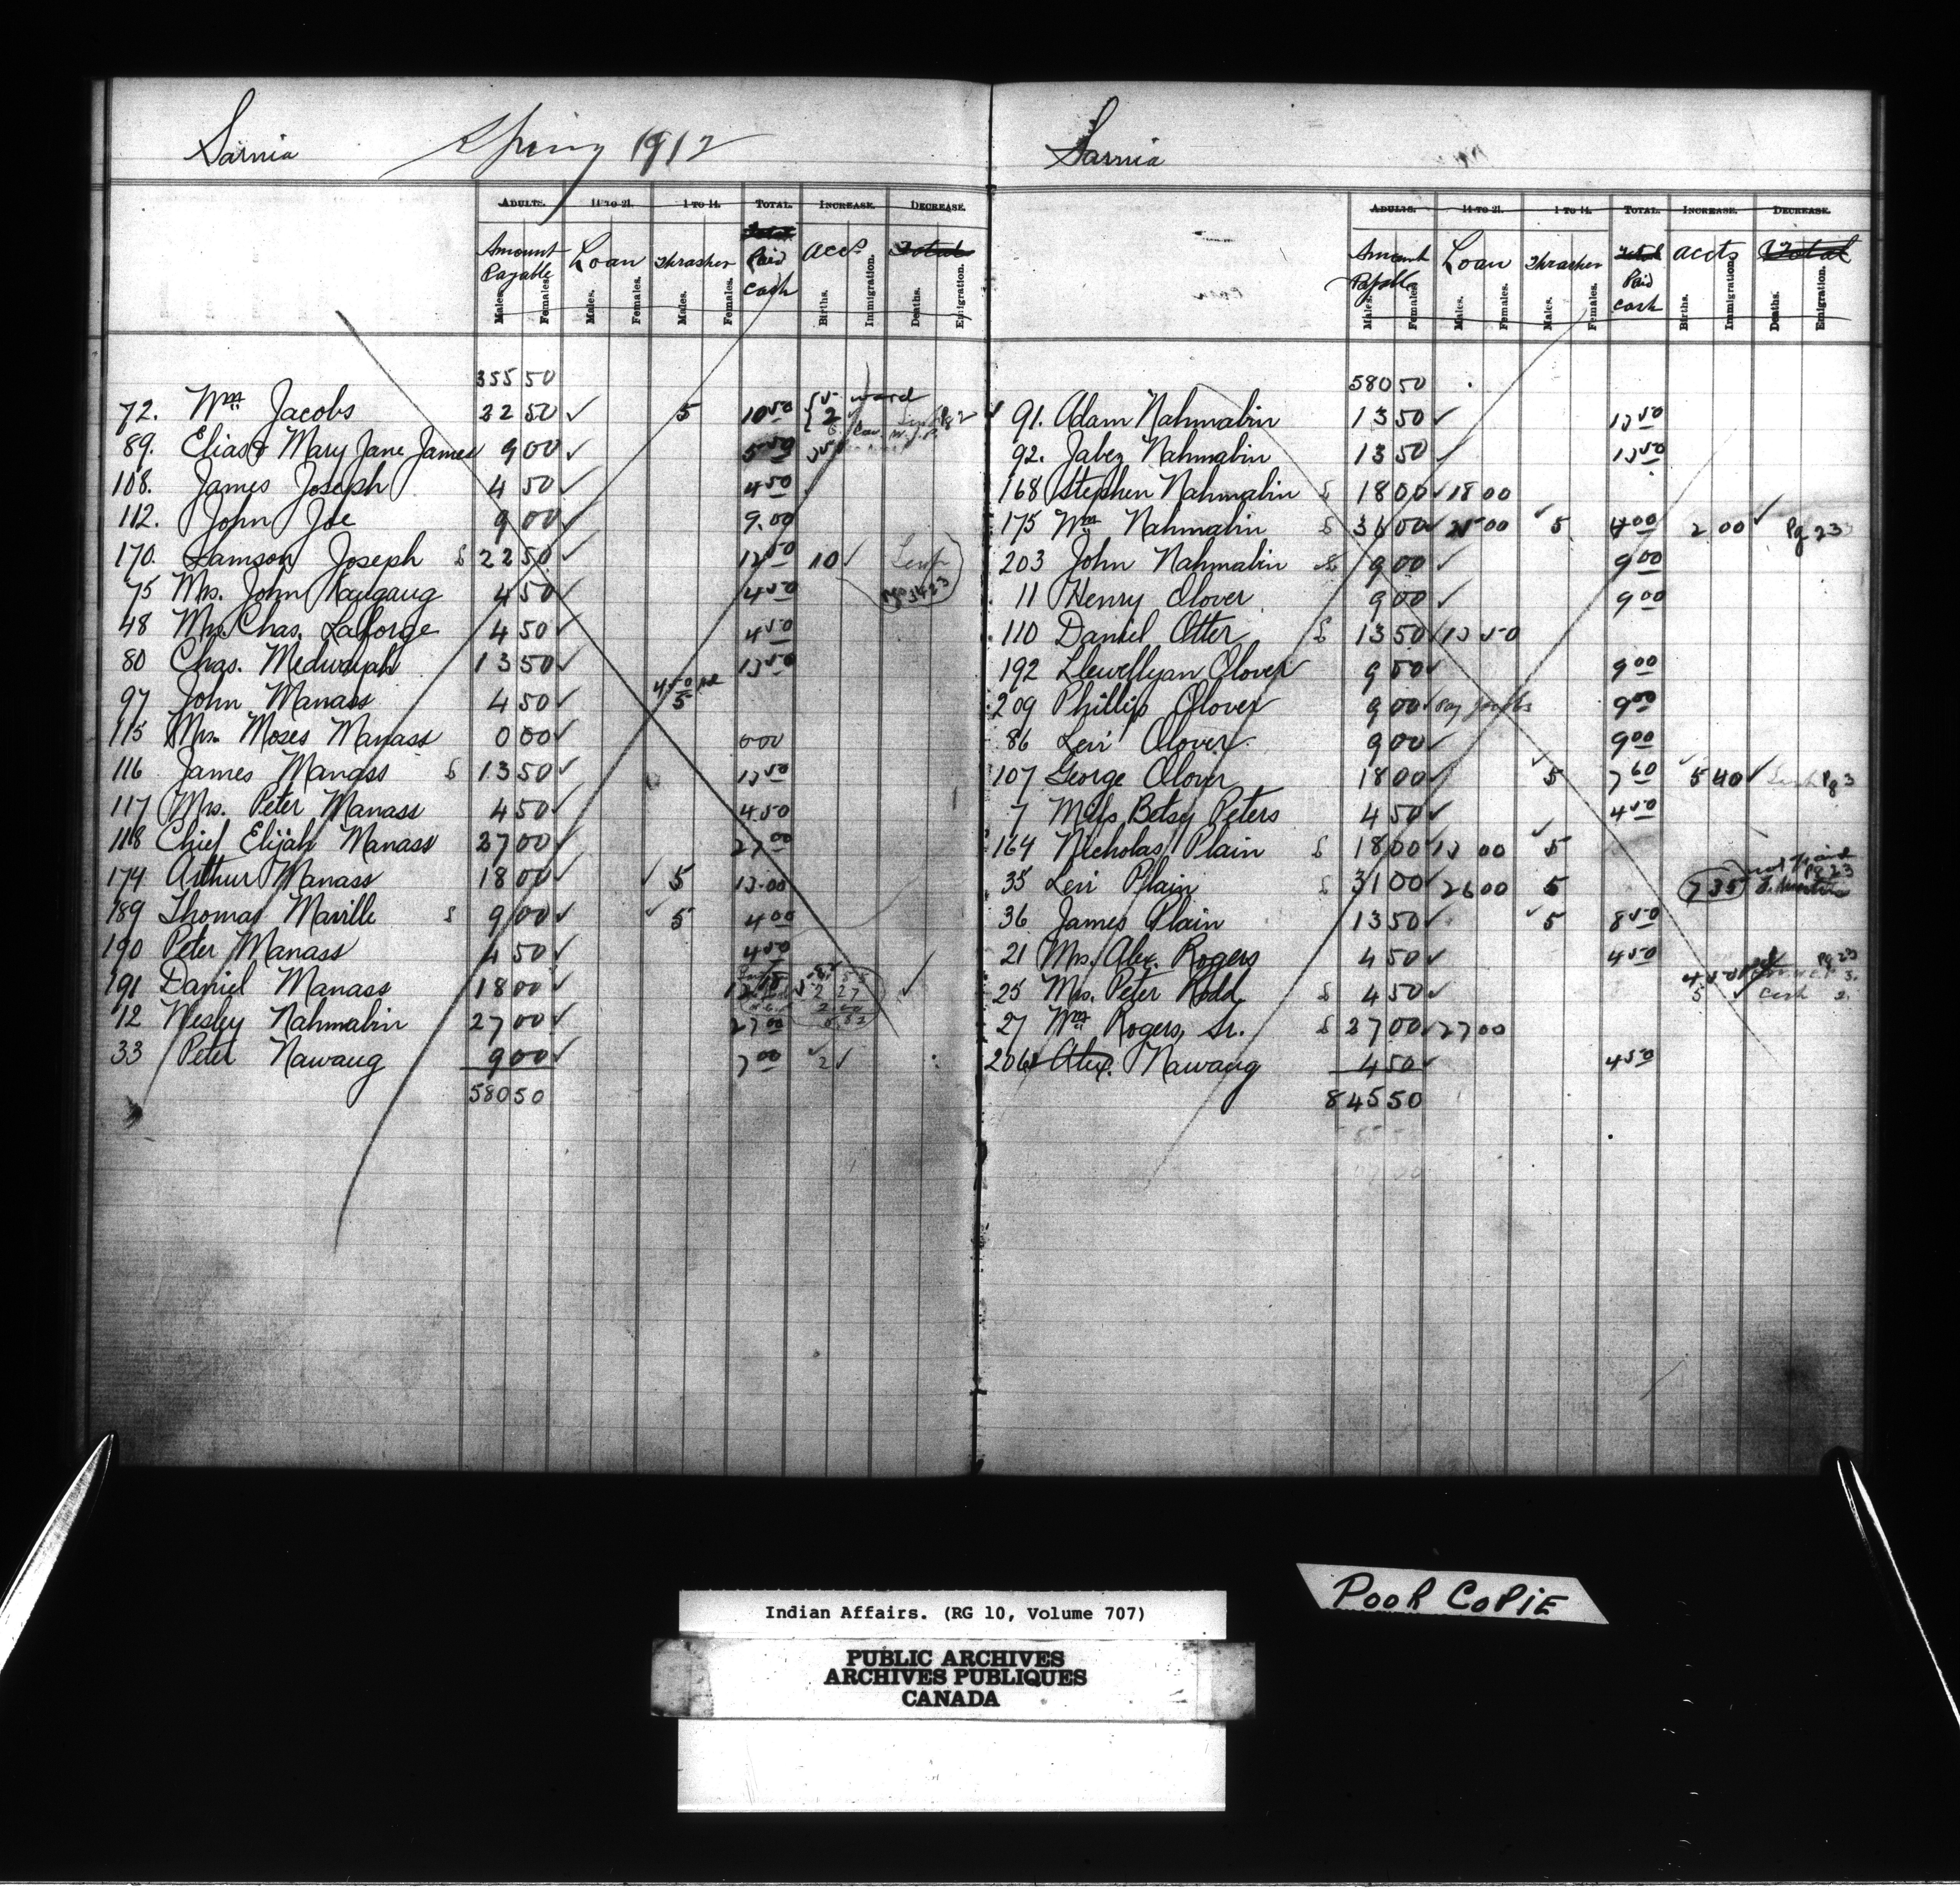 Sarnia Spring 1912
ADULTS. 14 TO 21. 1 TO 14. TOTAL. INCREASE. DECREASE.
Amount Payable Loan Thrasher Total Paid Cash Accts Total
Males. Females. Males. Females. Males. Females. Births. Immigration. Deaths. Emigration.
355 50
72. Wm Jacobs 22 50 ✓ 5 10 50 5 ward 2
89. Elias & Mary Jane James 9 00 ✓ 5 50 3 50
108. James Joseph 4 50 ✓ 4 50
112. John Joe 9 00 ✓ 9.00
170. Lamson Joseph S 22 50 ✓ 12 50 10 ✓
75 Mrs. John Kaugaug 4 50 ✓ 4 50
48 Mrs. Chas. Laforge 4 50 ✓ 4 50
80 Chas. Medwayah 13 50 ✓ 13 50
97 John Manass 4 50 ✓ 4 50 pd 5
115 Mrs. Moses Manass 0 00 ✓ 0 00
116 James Manass S 13 50 ✓ 13 50
117 Mrs. Peter Manass 4 50 ✓ 4.50
118 Chief Elijah Manass 27 00 ✓ 27 00
174 Arthur Manass 18 00 ✓ ✓ 5 13.00
189 Thomas Maville S 9 00 ✓ ✓ 5 4 00
190 Peter Manass 4 50 ✓ 4 50
191 Daniel Manass 18 00 ✓ ✓
12 Wesley Nahmabin 27 00 ✓ 27 00
33 Peter Nawaug 9 00 ✓ 7 00 ✓ 2 ✓
580 50
Sarnia
ADULTS. 14 TO 21. 1 TO 14. TOTAL. INCREASE. DECREASE.
Amount Payable Loan Thrasher Total Paid Cash Accts Total
Males. Females. Males. Females. Males. Females. Births. Immigration. Deaths. Emigration.
580 50
✓ 91. Adam Nahmabin 13 50 ✓ 13 50
92. Jabez Nahmabin 13 50 ✓ 13 50
168 Stephen Nahmabin S 18 00 ✓ 18 00
175 Wm Nahmabin S 36 00 ✓ 25 00 ✓ 5 4 00 2 00 ✓ Pg 23
203 John Nahmabin S 9 00 ✓ 9 00
11 Henry Olover 9 00 ✓ 9 00
110 Daniel Otter S 13 50 ✓ 13 50
192 Llewellyan Olover 9 00 ✓ 9 00
209 Phillip Olover 9 00 ✓ 9 00
86 Levi Olover 9 00 ✓ 9 00
107 George Olover 18 00 ✓ ✓ 5 7 60 ✓ 5 40 ✓ Pg 3
7 Miss Betsy Peters 4 50 ✓ 4 50
164 Nicholas Plain S 18 00 ✓ 13 00 ✓ 5
35 Levi Plain S 31 00 ✓ 26 00 5 7 35 not paid Pg 23
36 James Plain 13 50 ✓ ✓ 5 8 50
21 Mrs. Alex. Rogers 4 50 ✓ 4 50
25 Mrs. Peter Rodd S 4 50 ✓ 4 50 pd Pg 23 5 ✓ Cash
27 Wm Rogers, Sr. S 27 00 ✓ 27 00
206 Alex. Nawaug 4 50 ✓ 4 50
845 50
Indian Affairs. (RG 10, Volume 707)
PUBLIC ARCHIVES
ARCHIVES PUBLIQUES
CANADA
POOR COPIE